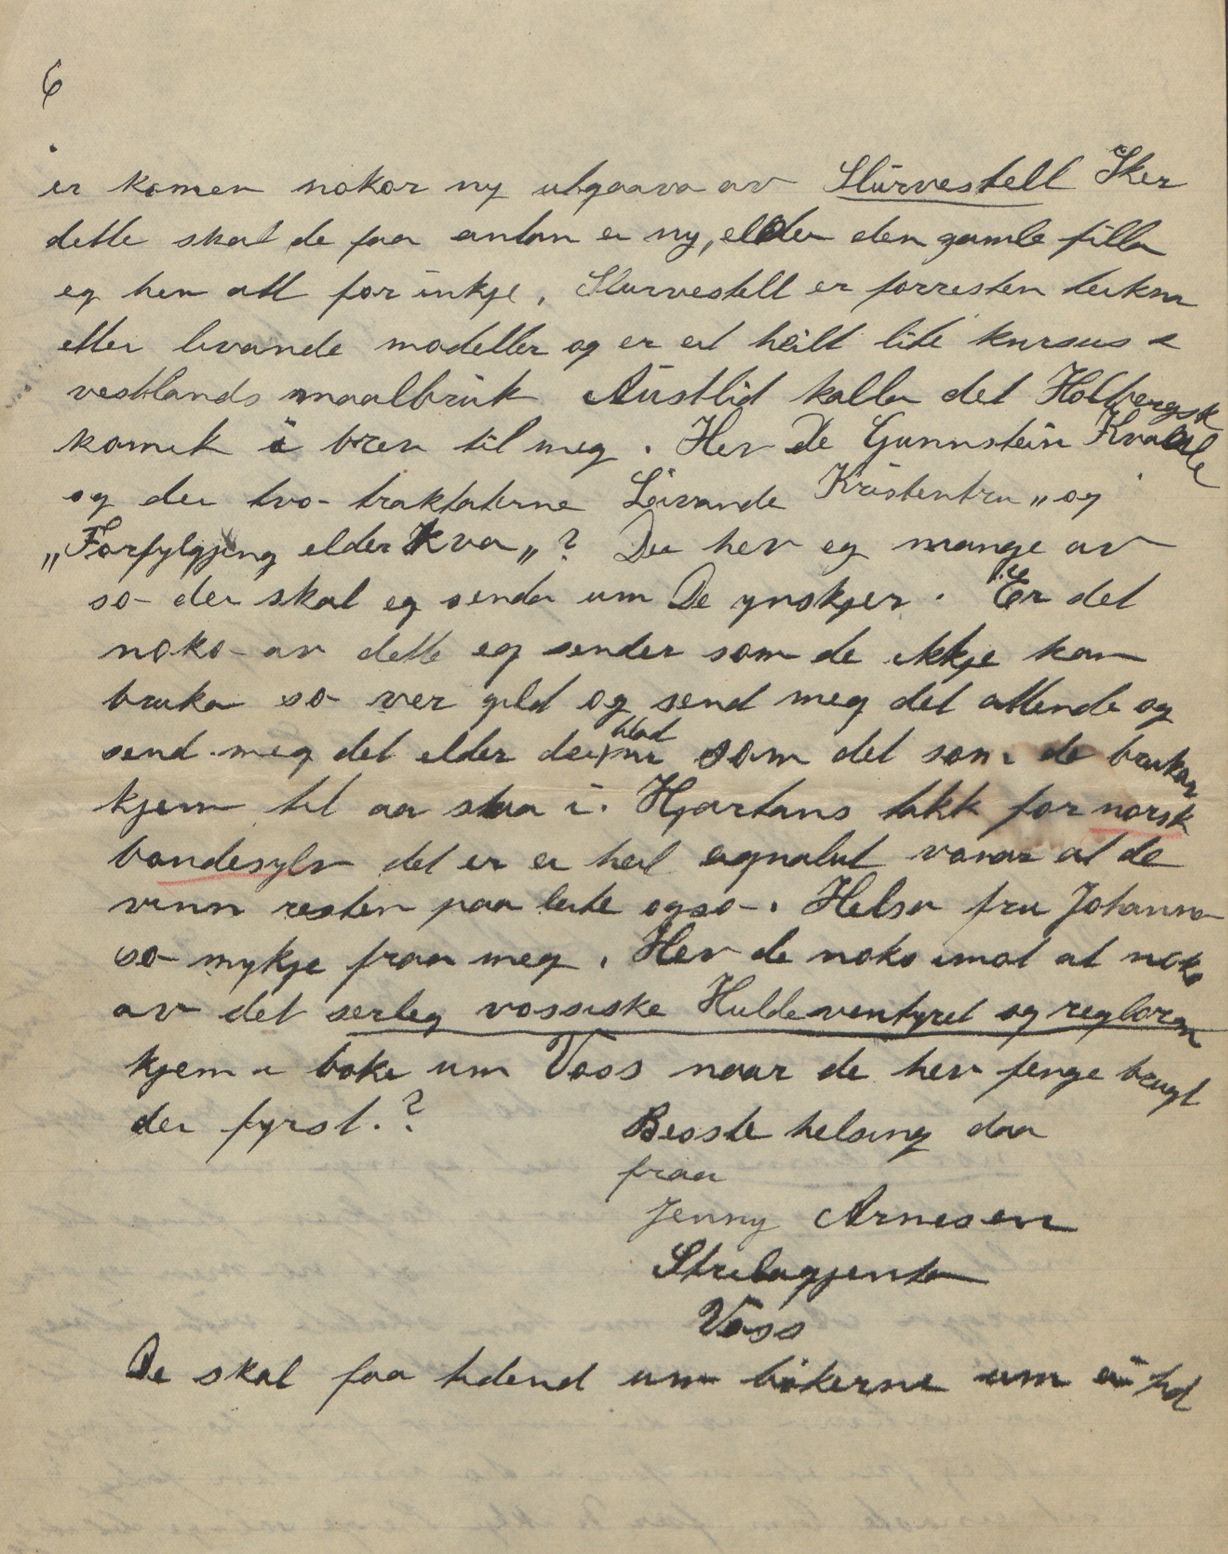 6
er komen nokor ny utgaava av Slurvestell Sker
dette skal de faa antan ei ny, elder den gamle filla
eg hev att for inkje. Slurvestell er forresten teikna
etter levande modeller og er eit heilt lite kursus i
vestlands maalbruk Austlid kalla det Holbergsk
komik i brev til meg. Hev De Gunnstein Kvaale
og dei tvo traktaterne Livande Kristentru „ og
„Forfylgjing elder kva„? Dei hev eg mange av
so dei skal eg senda um De ynskjer. Er det
noko av dette eg sender som de ikkje kan
bruka so ver gild og send meg det attende og
send meg det elder dei blad nr som det som de brukar
kjem til aa staa i. Hjartans takk for norsk
bondesylv det er ei heil eignalut vonar at de
vinn resten paa leite ogso. Helsa fru Johanna
so mykje fraa meg. Hev de noko imot at noko
av det serleg vossiske Huldeventyret og regloran
kjem i boki um Voss naar de hev fenge brugt
dei fyrst.?
Besste helsing daa
fraa
Jenny Arnesen
Strilagjenta
Voss
De skal faa tidend um bøkerne um ei tid